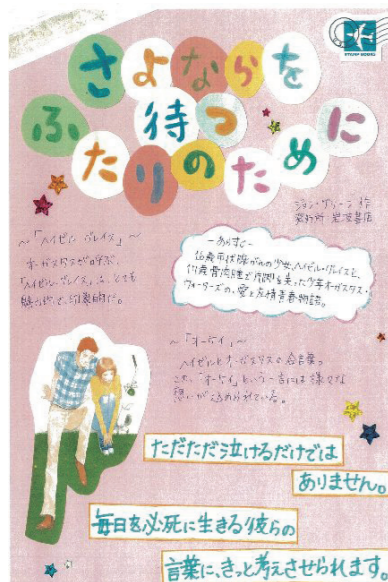 STAMP BOOKS
さよならを
待つ
ふたりのために
ジョン・グリーン 作
発行所 岩波書店
〜「ヘイゼル・グレイス」〜
オーガスタスが呼ぶ、
「ヘイゼル・グレイス」は、とても
魅力的で、印象的だ。
〜あらすじ〜
甲状腺がんの少女、ヘイゼル・グレイスと、
骨肉腫で片脚を失った少年オーガスタス・
ウォーターズの、愛と友情青春物語。
〜「オーケイ」〜
ヘイゼルとオーガスタスの合言葉。
この、「オーケイ」という一言には様々な
想いが込められている。
ただただ泣けるだけでは
ありません。
毎日を必死に生きる彼らの
言葉に、きっと考えさせられます。